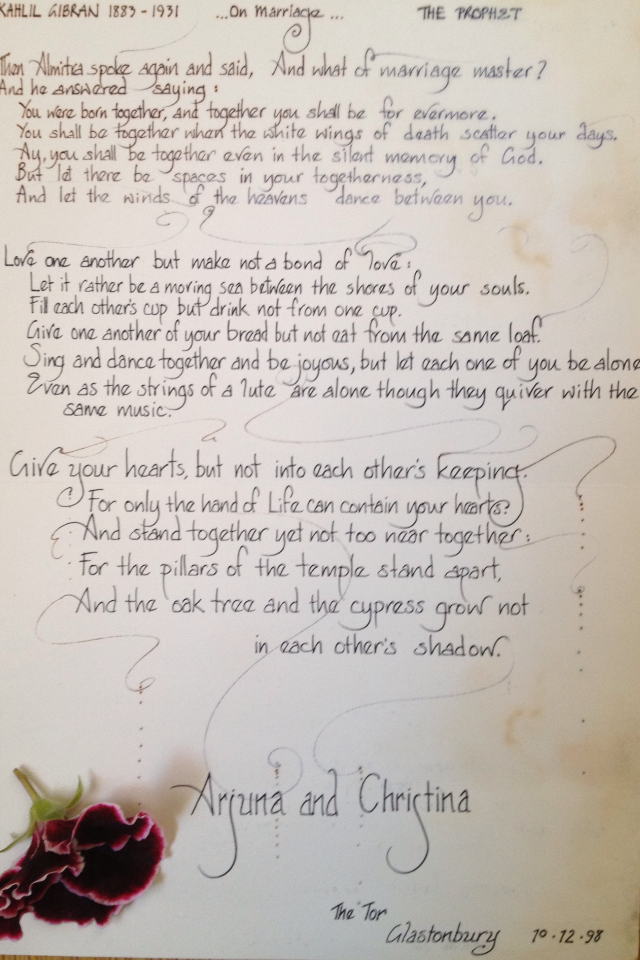 KAHLIL GIBRAN 1883 - 1931 ...On Marriage... THE PROPHET
Then Almitra spoke again and said, And what of marriage master?
And he answered saying:
You were born together, and together you shall be for evermore.
You shall be together when the white wings of death scatter your days.
Ay, you shall be together even in the silent memory of God.
But let there be spaces in your togetherness,
And let the winds of the heavens dance between you.
Love one another but make not a bond of love:
Let it rather be a moving sea between the shores of your souls.
Fill each other's cup but drink not from one cup.
Give one another of your bread but not eat from the same loaf.
Sing and dance together and be joyous, but let each one of you be alone
Even as the strings of a lute are alone though they quiver with the
same music.
Give your hearts, but not into each other's keeping.
For only the hand of Life can contain your hearts?
And stand together yet not too near together:
For the pillars of the temple stand apart,
And the oak tree and the cypress grow not
in each other's shadow.
Arjuna and Christina
The Tor
Glastonbury 10.12.98